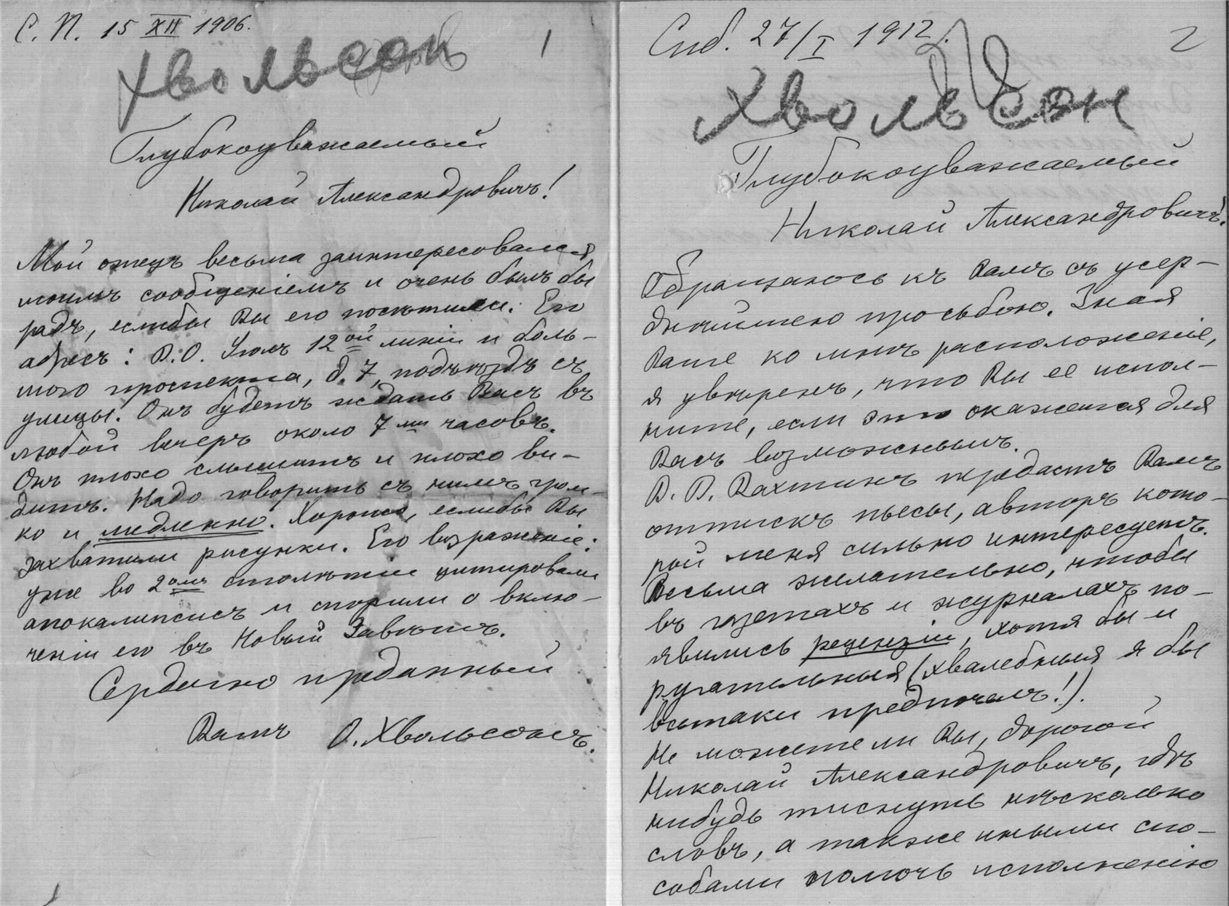 С. П. 15 XII 1906.
1
Хвольсон
Глубокоуважаемый
Николай Александровичъ!
Мой отецъ весьма заинтересовался
моимъ сообщеніемъ и очень былъ бы
радъ, еслибы Вы его посѣтили. Его
адресъ: В.О. Уголъ 12ой линіи и боль-
шого проспекта, д. 7, подъѣздъ съ
улицы. Онъ будетъ ждать Васъ въ
любой вечеръ около 7ми часовъ.
Онъ плохо слышитъ и плохо ви-
дитъ. Надо говорить съ нимъ гром-
ко и медленно. Хорошо, еслибы Вы
захватили рисунки. Его возраженіе:
уже во 2омъ столѣтіи цитировали
апокалипсисъ и спорили о вклю-
ченіи его въ Новый Завѣтъ.
Сердечно преданный
Вамъ О. Хвольсонъ.
Спб. 27/I 1912.
2
Хвольсон
Глубокоуважаемый
Николай Александровичъ!
Обращаюсь къ Вамъ съ усер-
днѣйшею просьбою. Зная
Ваше ко мнѣ расположеніе,
я увѣренъ, что Вы ее испол-
ните, если это окажется для
Васъ возможнымъ.
В. В. Вахтинъ передастъ Вамъ
оттискъ пьесы, авторъ кото-
рой меня сильно интересуетъ.
Весьма желательно, чтобы
въ газетахъ и журналахъ по-
явились рецензіи, хотя бы и
ругательныя (хвалебныя я бы
всетаки предпочелъ!).
Не можете ли Вы, дорогой
Николай Александровичъ, гдѣ
нибудь тиснуть нѣсколько
словъ, а также иными спо-
собами помочь исполненію